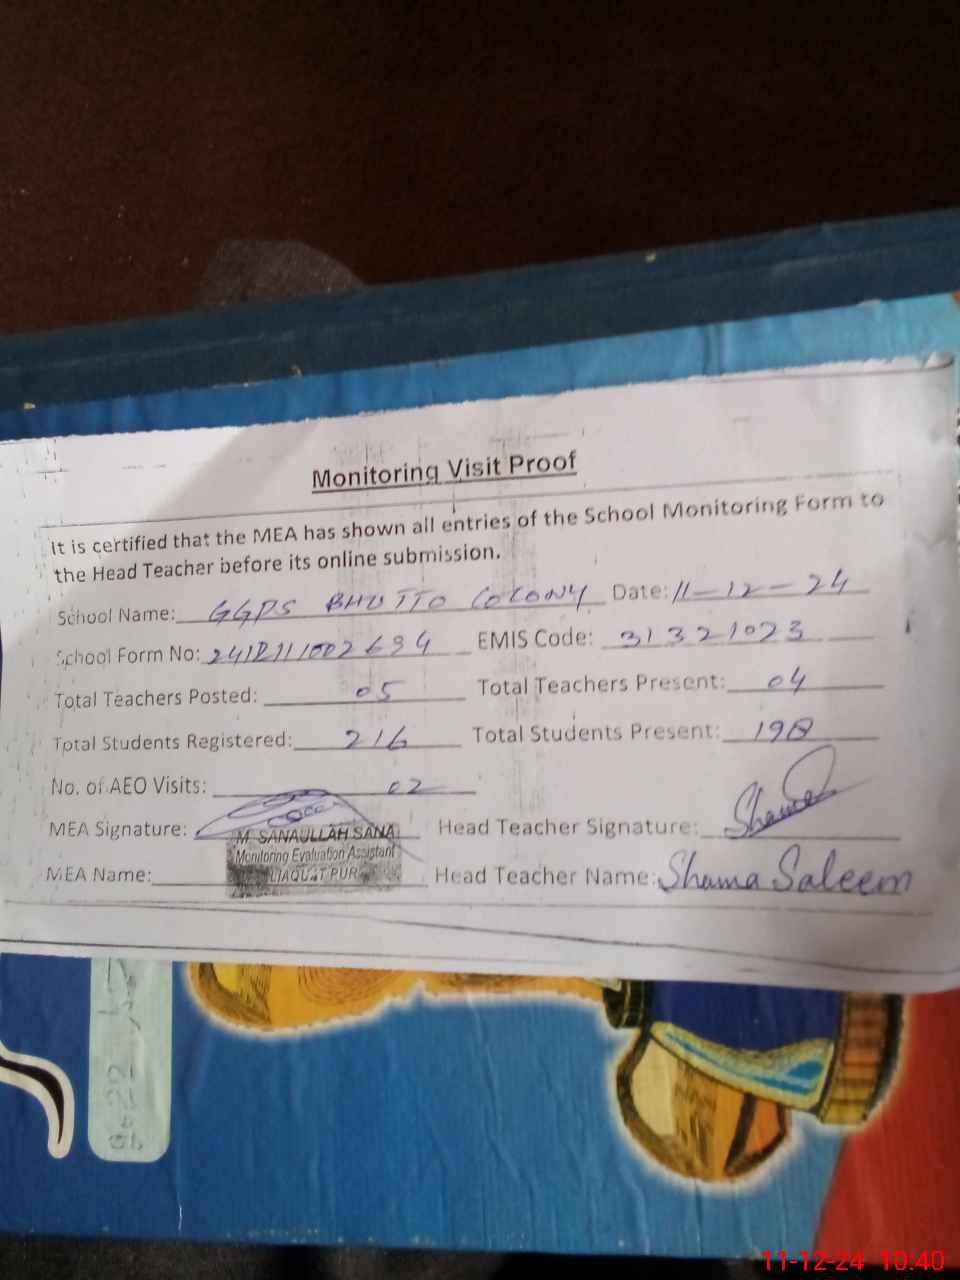 Monitoring Visit Proof
It is certified that the MEA has shown all entries of the School Monitoring Form to
the Head Teacher before its online submission.
School Name: GGPS BHUTTO COLONY Date: 11-12-24
School Form No: EMIS Code: 31321023
Total Teachers Posted: 05 Total Teachers Present: 04
Total Students Registered: 216 Total Students Present: 198
No. of AEO Visits: 02
MEA Signature: Head Teacher Signature: Shama
M. SANAULLAH SANA
Monitoring Evaluation Assistant
LIAQUAT PUR
MEA Name: Head Teacher Name: Shama Saleem
11-12-24 10:40